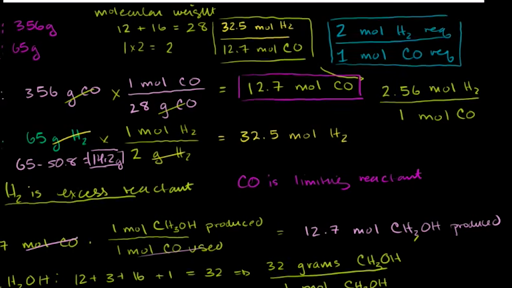 molecular weight
: 356g
12 + 16 = 28
32.5 mol H2
12.7 mol CO
2 mol H2 req
1 mol CO req
: 65g
1x2 = 2
: 356 g CO × 1 mol CO / 28 g CO = 12.7 mol CO
2.56 mol H2
1 mol CO
: 65 g H2 × 1 mol H2 / 2 g H2 = 32.5 mol H2
65-50.8 = 14.2g
H2 is excess reactant
CO is limiting reactant
7 mol CO · 1 mol CH3OH produced / 1 mol CO used = 12.7 mol CH3OH produced
H3OH: 12+3+16+1 = 32 ⇒ 32 grams CH3OH
1 mol CH3OH